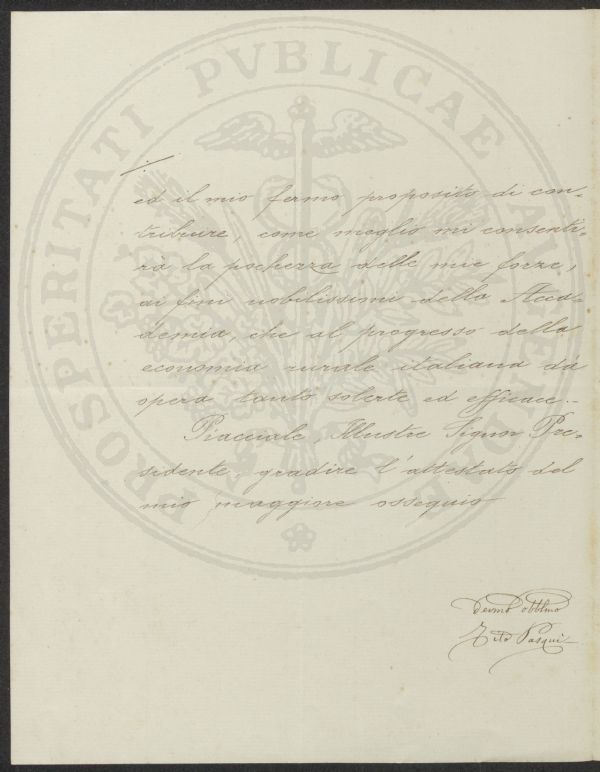 PROSPERITATI PVBLICAE AVGENDAE
./.
ed il mio fermo proposito di con-
tribuire, come meglio mi consenti-
rà la pochezza delle mie forze,
ai fini nobilissimi della Acca-
demia, che al progresso della
economia rurale italiana dà
opera tanto solerte ed efficace.-
Piacciale, Illustre Signor Pre-
sidente, gradire l'attestato del
mio maggiore ossequio
Devmo obblmo
Tito Pasqui